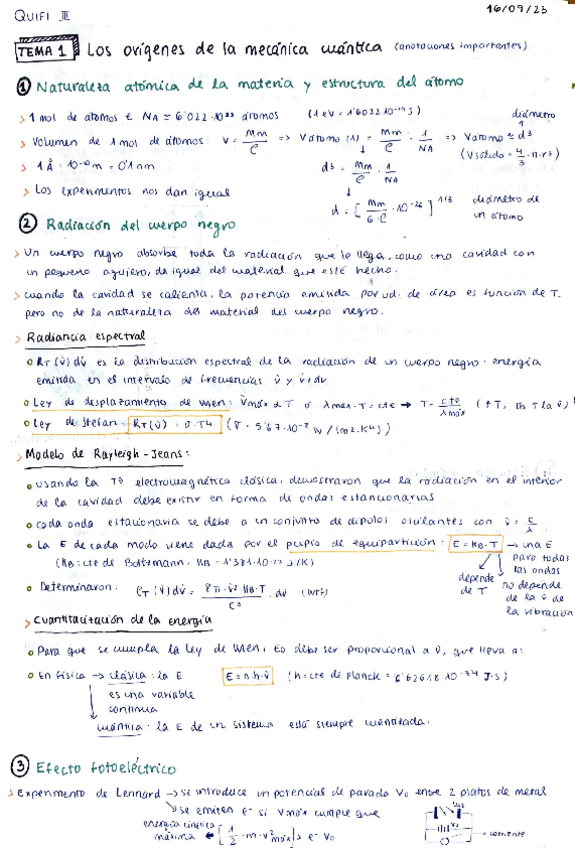 QUIFI III
16/09/23
TEMA 1 Los orígenes de la mecánica cuántica (anotaciones importantes)
① Naturaleza atómica de la materia y estructura del átomo
> 1 mol de átomos ∈ NA ≃ 6'022·10²³ átomos (1 eV = 1'6022·10⁻¹⁹ J)
diámetro
> Volumen de 1 mol de átomos: V = Mm/ρ => Vátomo (1) = Mm/ρ · 1/NA => Vátomo ≃ d³
(Vsólido = 4/3·π·r³)
> 1 Å = 10⁻¹⁰ m = 0'1 nm
d³ = Mm/ρ · 1/NA
> Los experimentos nos dan igual
d = [Mm/6·ρ · 10⁻²⁶]^1/3 diámetro de un átomo
② Radiación del cuerpo negro
> Un cuerpo negro absorbe toda la radiación que le llega, como una cavidad con
un pequeño agujero, da igual del material que esté hecho.
> cuando la cavidad se calienta, la potencia emitida por ud. de área es función de T,
pero no de la naturaleza del material del cuerpo negro.
> Radiancia espectral
o RT(ν) dν es la distribución espectral de la radiación de un cuerpo negro: energía
emitida en el intervalo de frecuencias ν y ν+dν
o Ley de desplazamiento de Wien: νmáx α T o λmáx·T = cte → T = cte/λmáx
o Ley de Stefan: RT(ν) = σ·T⁴ (σ = 5'67·10⁻⁸ W/(m2.K⁴))
> Modelo de Rayleigh-Jeans:
o usando la Tª electromagnética clásica, demostraron que la radiación en el interior
de la cavidad debe existir en forma de ondas estacionarias
o cada onda estacionaria se debe a un conjunto de dipolos oscilantes con ν = c/λ
o La E de cada modo viene dada por el ppio de equipartición: E = KB·T → una E
para todas
las ondas
(KB: cte de Boltzmann, KB = 1'381·10⁻²³ J/K)
depende
de T
no depende
de la ν de
la vibración
o Determinaron: ρT(ν) dν = 8π·ν² KB·T/c³ · dν
> Cuantización de la energía
o Para que se cumpla la ley de Wien, E0 debe ser proporcional a ν, que lleva a:
o En física → clásica: la E
es una variable
continua
E = n·h·ν (h: cte de Planck = 6'62618·10⁻³⁴ J·s)
cuántica: la E de un sistema está siempre cuantizada.
③ Efecto fotoeléctrico
> Experimento de Lennard → se introduce un potencial de parada V0 entre 2 platos de metal
→ se emiten e⁻ si Vmáx cumple que
energía cinética
máxima ← [1/2·m·v²máx] > e·V0
corriente